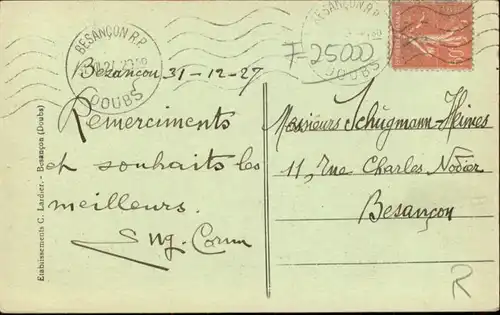 BESANÇON R.P.
DOUBS
BESANÇON R.P.
DOUBS
T-25000
Besançon 31-12-27
Remerciments
et souhaits les
meilleurs.
Messieurs Schügmann-Heimes
11, Rue Charles Nodier
Besançon
R
Etablissements C. Lardier. - Besançon (Doubs)